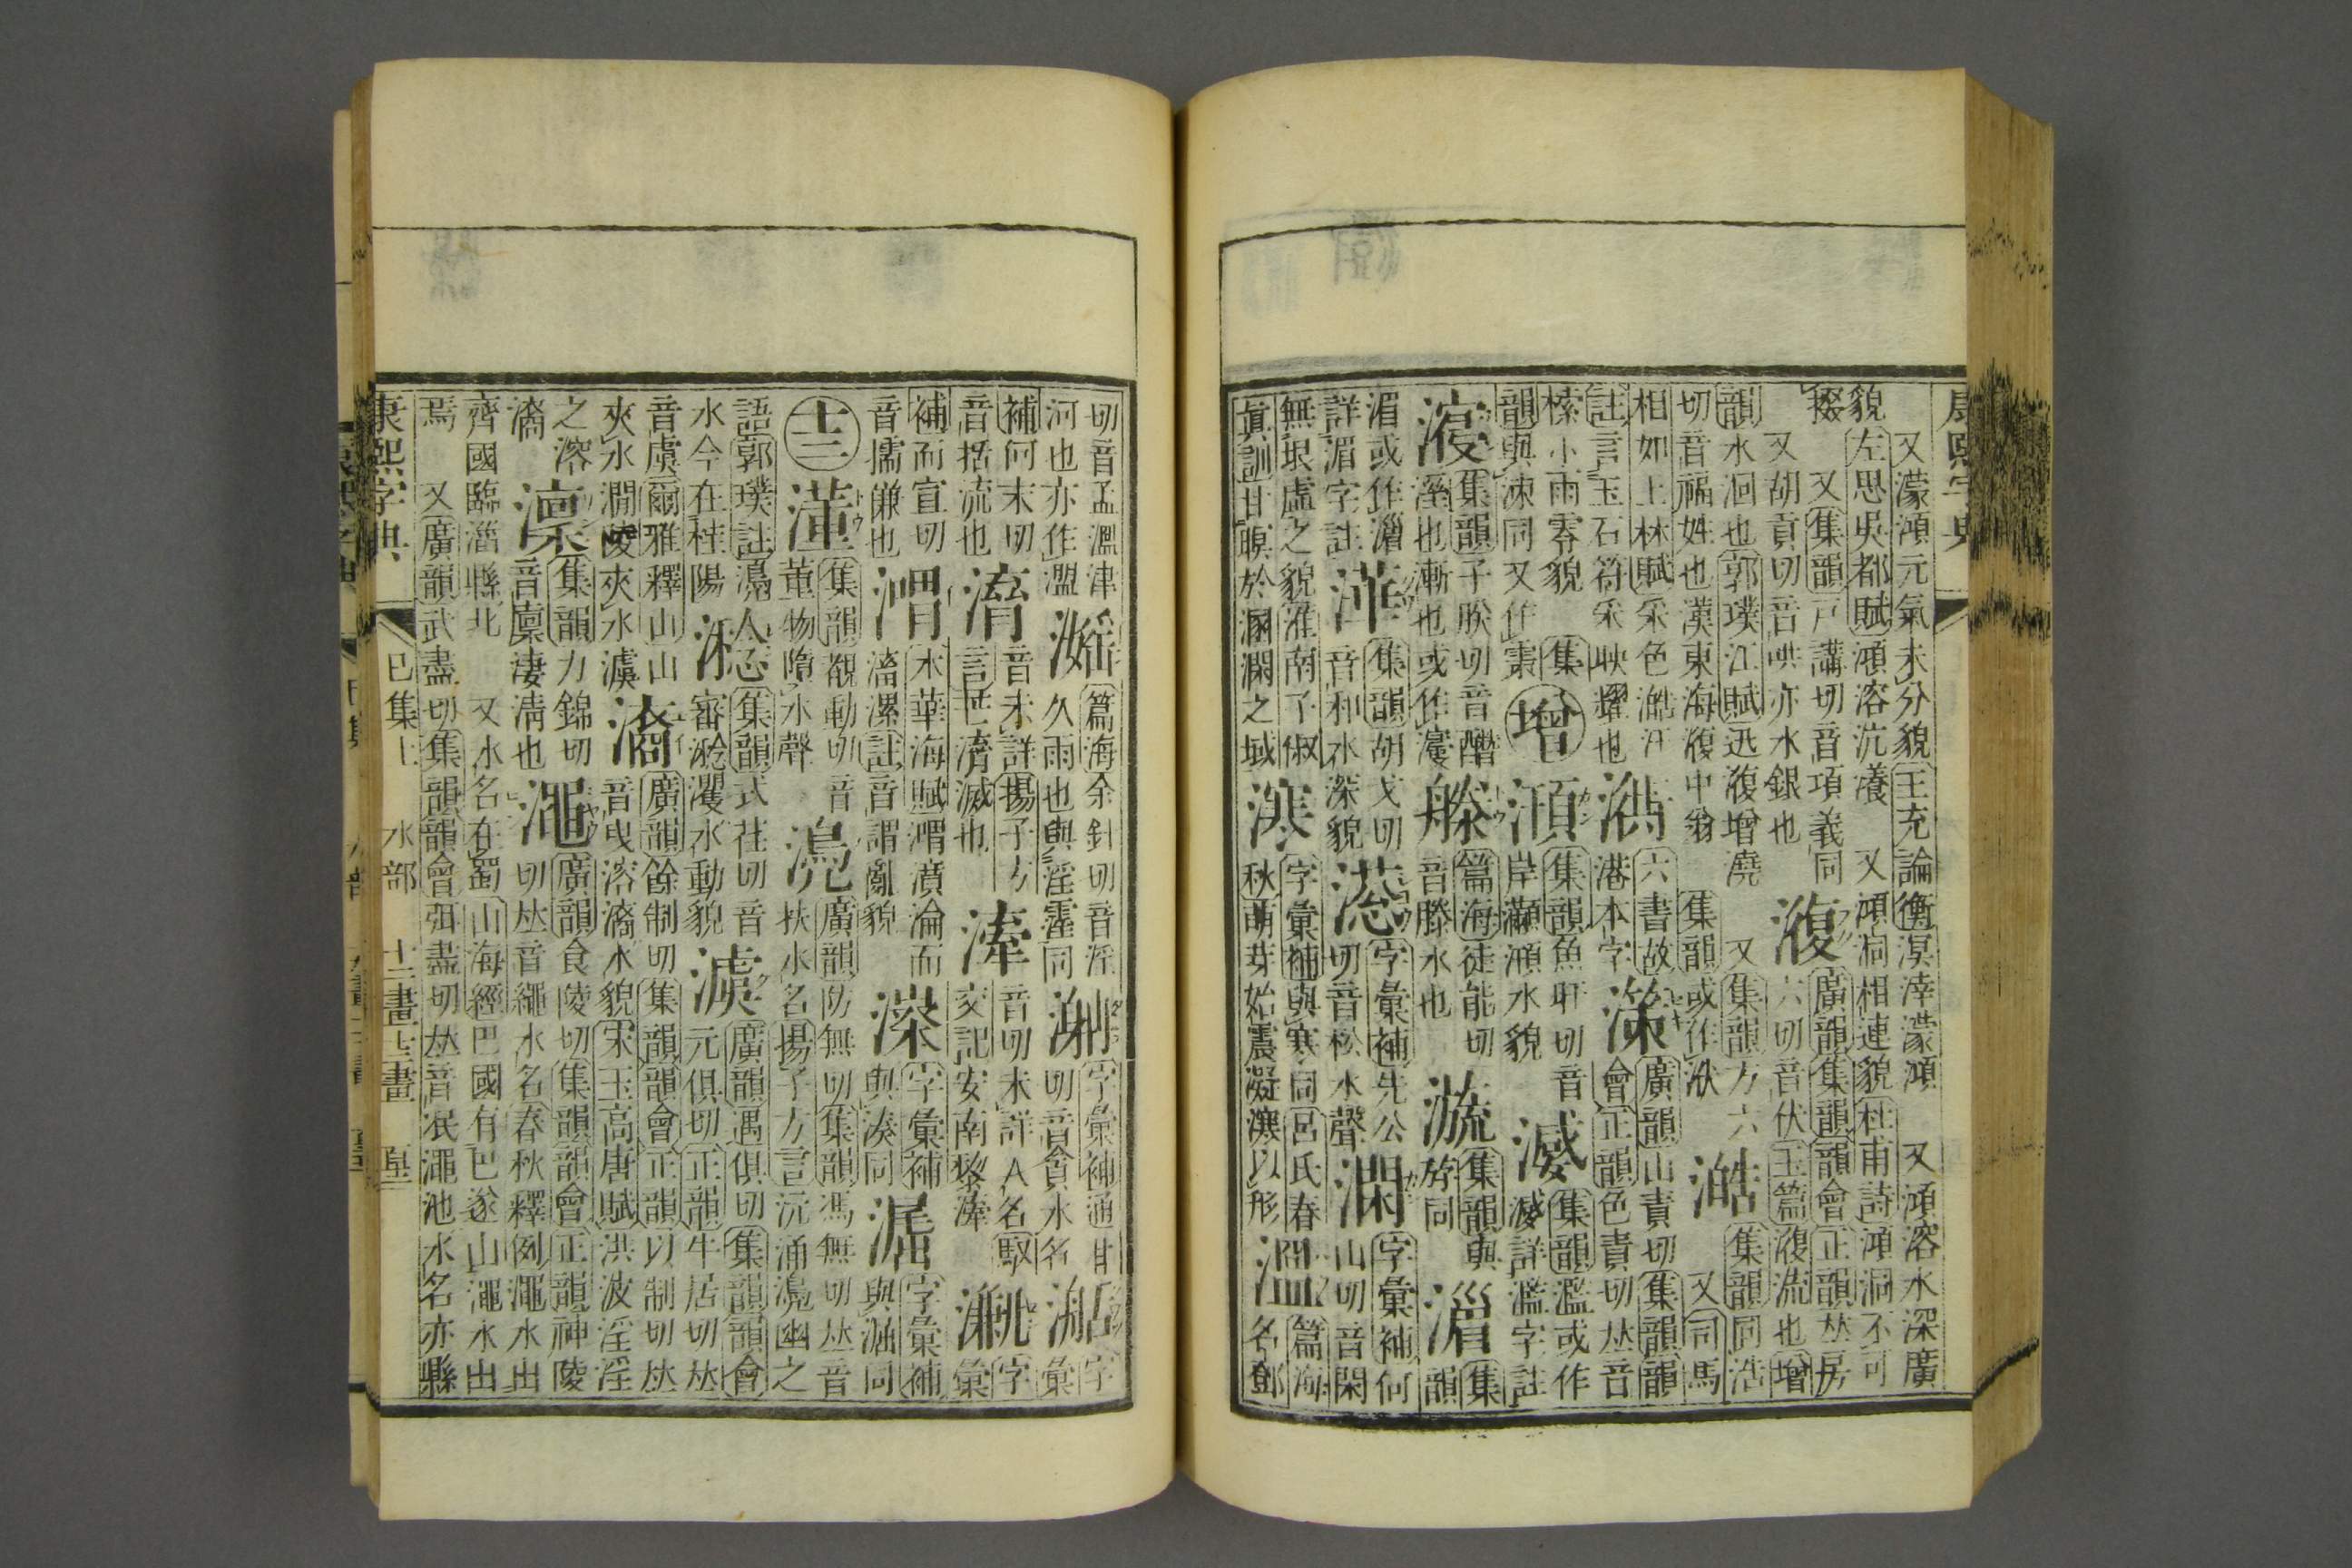 康熙字典
又濛澒元氣未分貌王充論衡溟涬濛澒　又澒溶水深廣
貌左思吳都賦澒溶沆瀁　又澒洞相連貌杜甫詩澒洞不可
掇　又集韻戸講切音項義同
又胡貢切音哄亦水銀也
澓
廣韻集韻韻會正韻𠀤房
六切音伏玉篇澓流也增
韻水洄也郭璞江賦迅澓增澆　又集韻方六
切音福姓也漢東海澓中翁　集韻或作洑
澔
集韻同浩　又司馬
相如上林賦采色澔汗
註言玉石符采映耀也
六書故
港本字
溹
廣韻山責切集韻韻
會正韻色責切𠀤音
榡小雨零貌　集
韻與涑同又作
增
集韻魚旰切音
岸水貌
集韻濫或作
詳濫字註
集韻子朕切音
也漸也或作
篇海徒能切
音滕水也
集韻與
同
集
韻
湄或作
詳湄字註
集韻胡戈切
音和水深貌
字彙補先公
切音松水聲
澖
字彙補何
山切音閑
無垠虛之貌淮南子俶
眞訓甘瞑於溷澖之域
字彙補與寒同呂氏春
秋萌芽始震凝以形
溫
篇海
名鄧
切音孟溫津
河也亦作
篇海余針切音淫
久雨也與淫霪同
字彙補通甘
切音貪水名
字
彙
補何末切
音括流也
音未詳揚子方
言滅也
湋
音切未詳人名馭
交記安南黎湋
字
彙
補而宣切
音擩也
木華海賦濆淪而
滀漯註音謂亂貌
字彙補
與湊同
字彙補
與漏同
十二
集韻覩動切音
董物墮水聲
廣韻防無切集韻馮無切𠀤音
扶水名揚子方言沅涌幽之
語郭璞註
水今在桂陽
集韻式荏切音
審水動貌
澞
廣韻遇俱切集韻韻會
元俱切正韻牛居切𠀤
音虞爾雅釋山山
夾水澗陵夾水澞
㵝
廣韻餘制切集韻韻會正韻以制切𠀤
音曳溶㵝水貌宋玉高唐賦洪波淫淫
之溶
㵝
澟
集韻力錦切
音廩凄淸也
澠
廣韻食陵切集韻韻會正韻神陵
切𠀤音繩水名春秋釋例澠水出
齊國臨淄縣北　又水名在蜀山海經巴國有巴遂山澠水出
焉　又廣韻武盡切集韻韻會弭盡切𠀤音泯澠池水名亦縣
康熙字典　巳集上　水部　十二畫